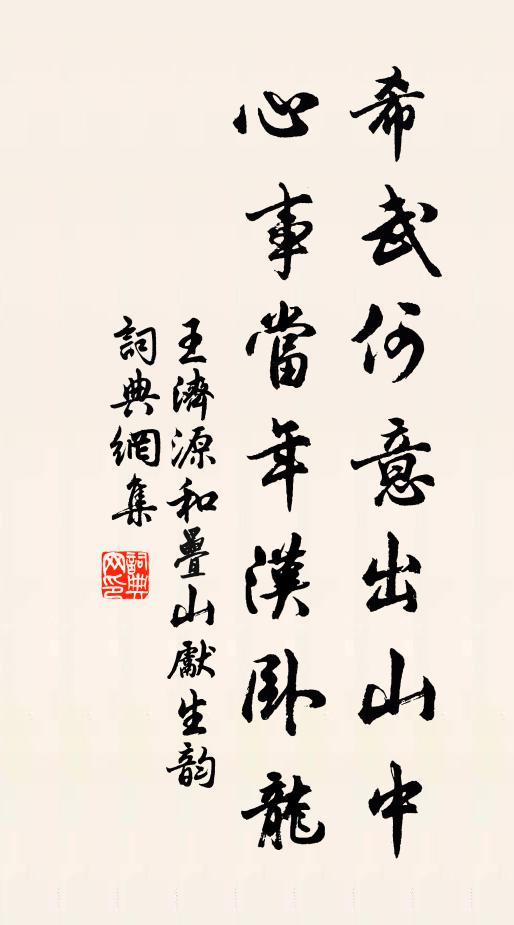 希武何意出山中
心事當年漢卧龍
王濟源和疊山獻生韵
詞典網集
詞典網印